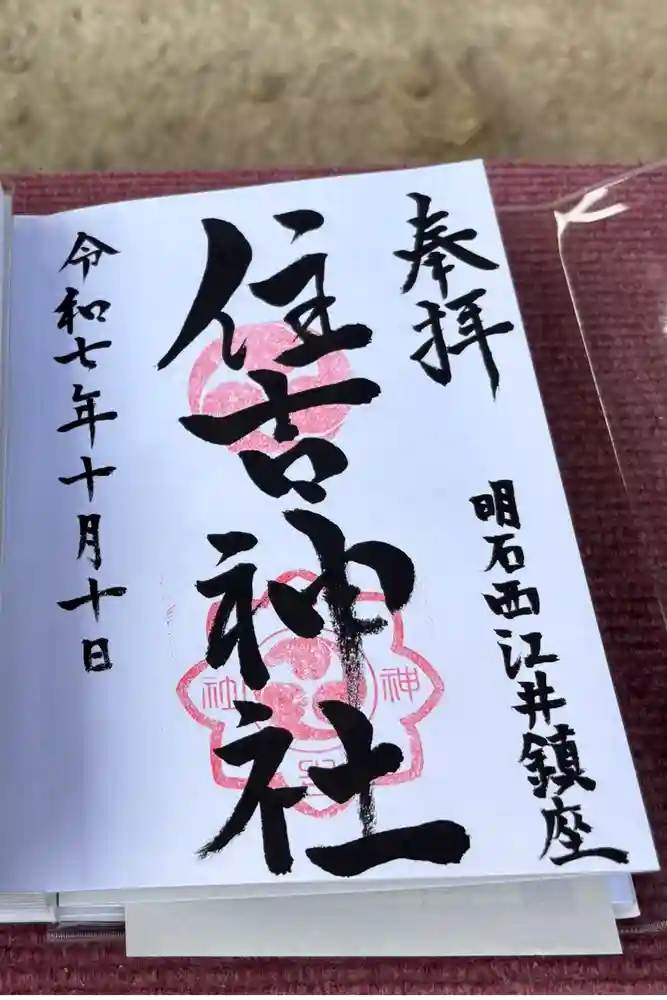 奉拝
明石西江井鎮座
住吉神社
神
社
令和七年十月十日